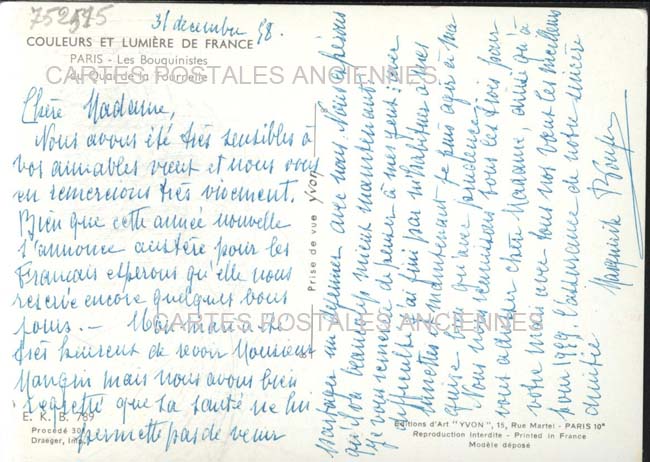 752575
31 décembre 58.
COULEURS ET LUMIÈRE DE FRANCE
PARIS - Les Bouquinistes
du Quai de la Tournelle
CARTES POSTALES ANCIENNES
Chère Madame,
Nous avons été très sensibles à
vos aimables vœux et nous vous
en remercions très vivement.
Bien que cette année nouvelle
s'annonce austère pour les
Français espérons qu'elle nous
réserve encore quelques bons
jours. — Mon mari a été
CARTES POSTALES ANCIENNES
très heureux de revoir Monsieur
Mangin mais nous avons bien
regretté que sa santé ne lui
permette pas de venir
E. K. B. 789
Procédé 301
Draeger, Imp.
Prise de vue yvon
partager un déjeuner avec nous. Nous espérons
qu'il va beaucoup mieux maintenant.
Je vous remercie de penser à mes yeux : avec
difficulté j'ai fini par m'habituer à mes
lunettes et maintenant je puis agir à ma
guise bien qu'avec prudence.
Nous nous réunissons tous les trois pour
vous adresser chère Madame, ainsi qu'à
votre mari avec tous nos vœux les meilleurs
pour 1959. l'assurance de notre sincère
amitié
Marguerite
Editions d'Art "YVON", 15, Rue Martel - PARIS 10e
Reproduction Interdite - Printed in France
Modèle déposé